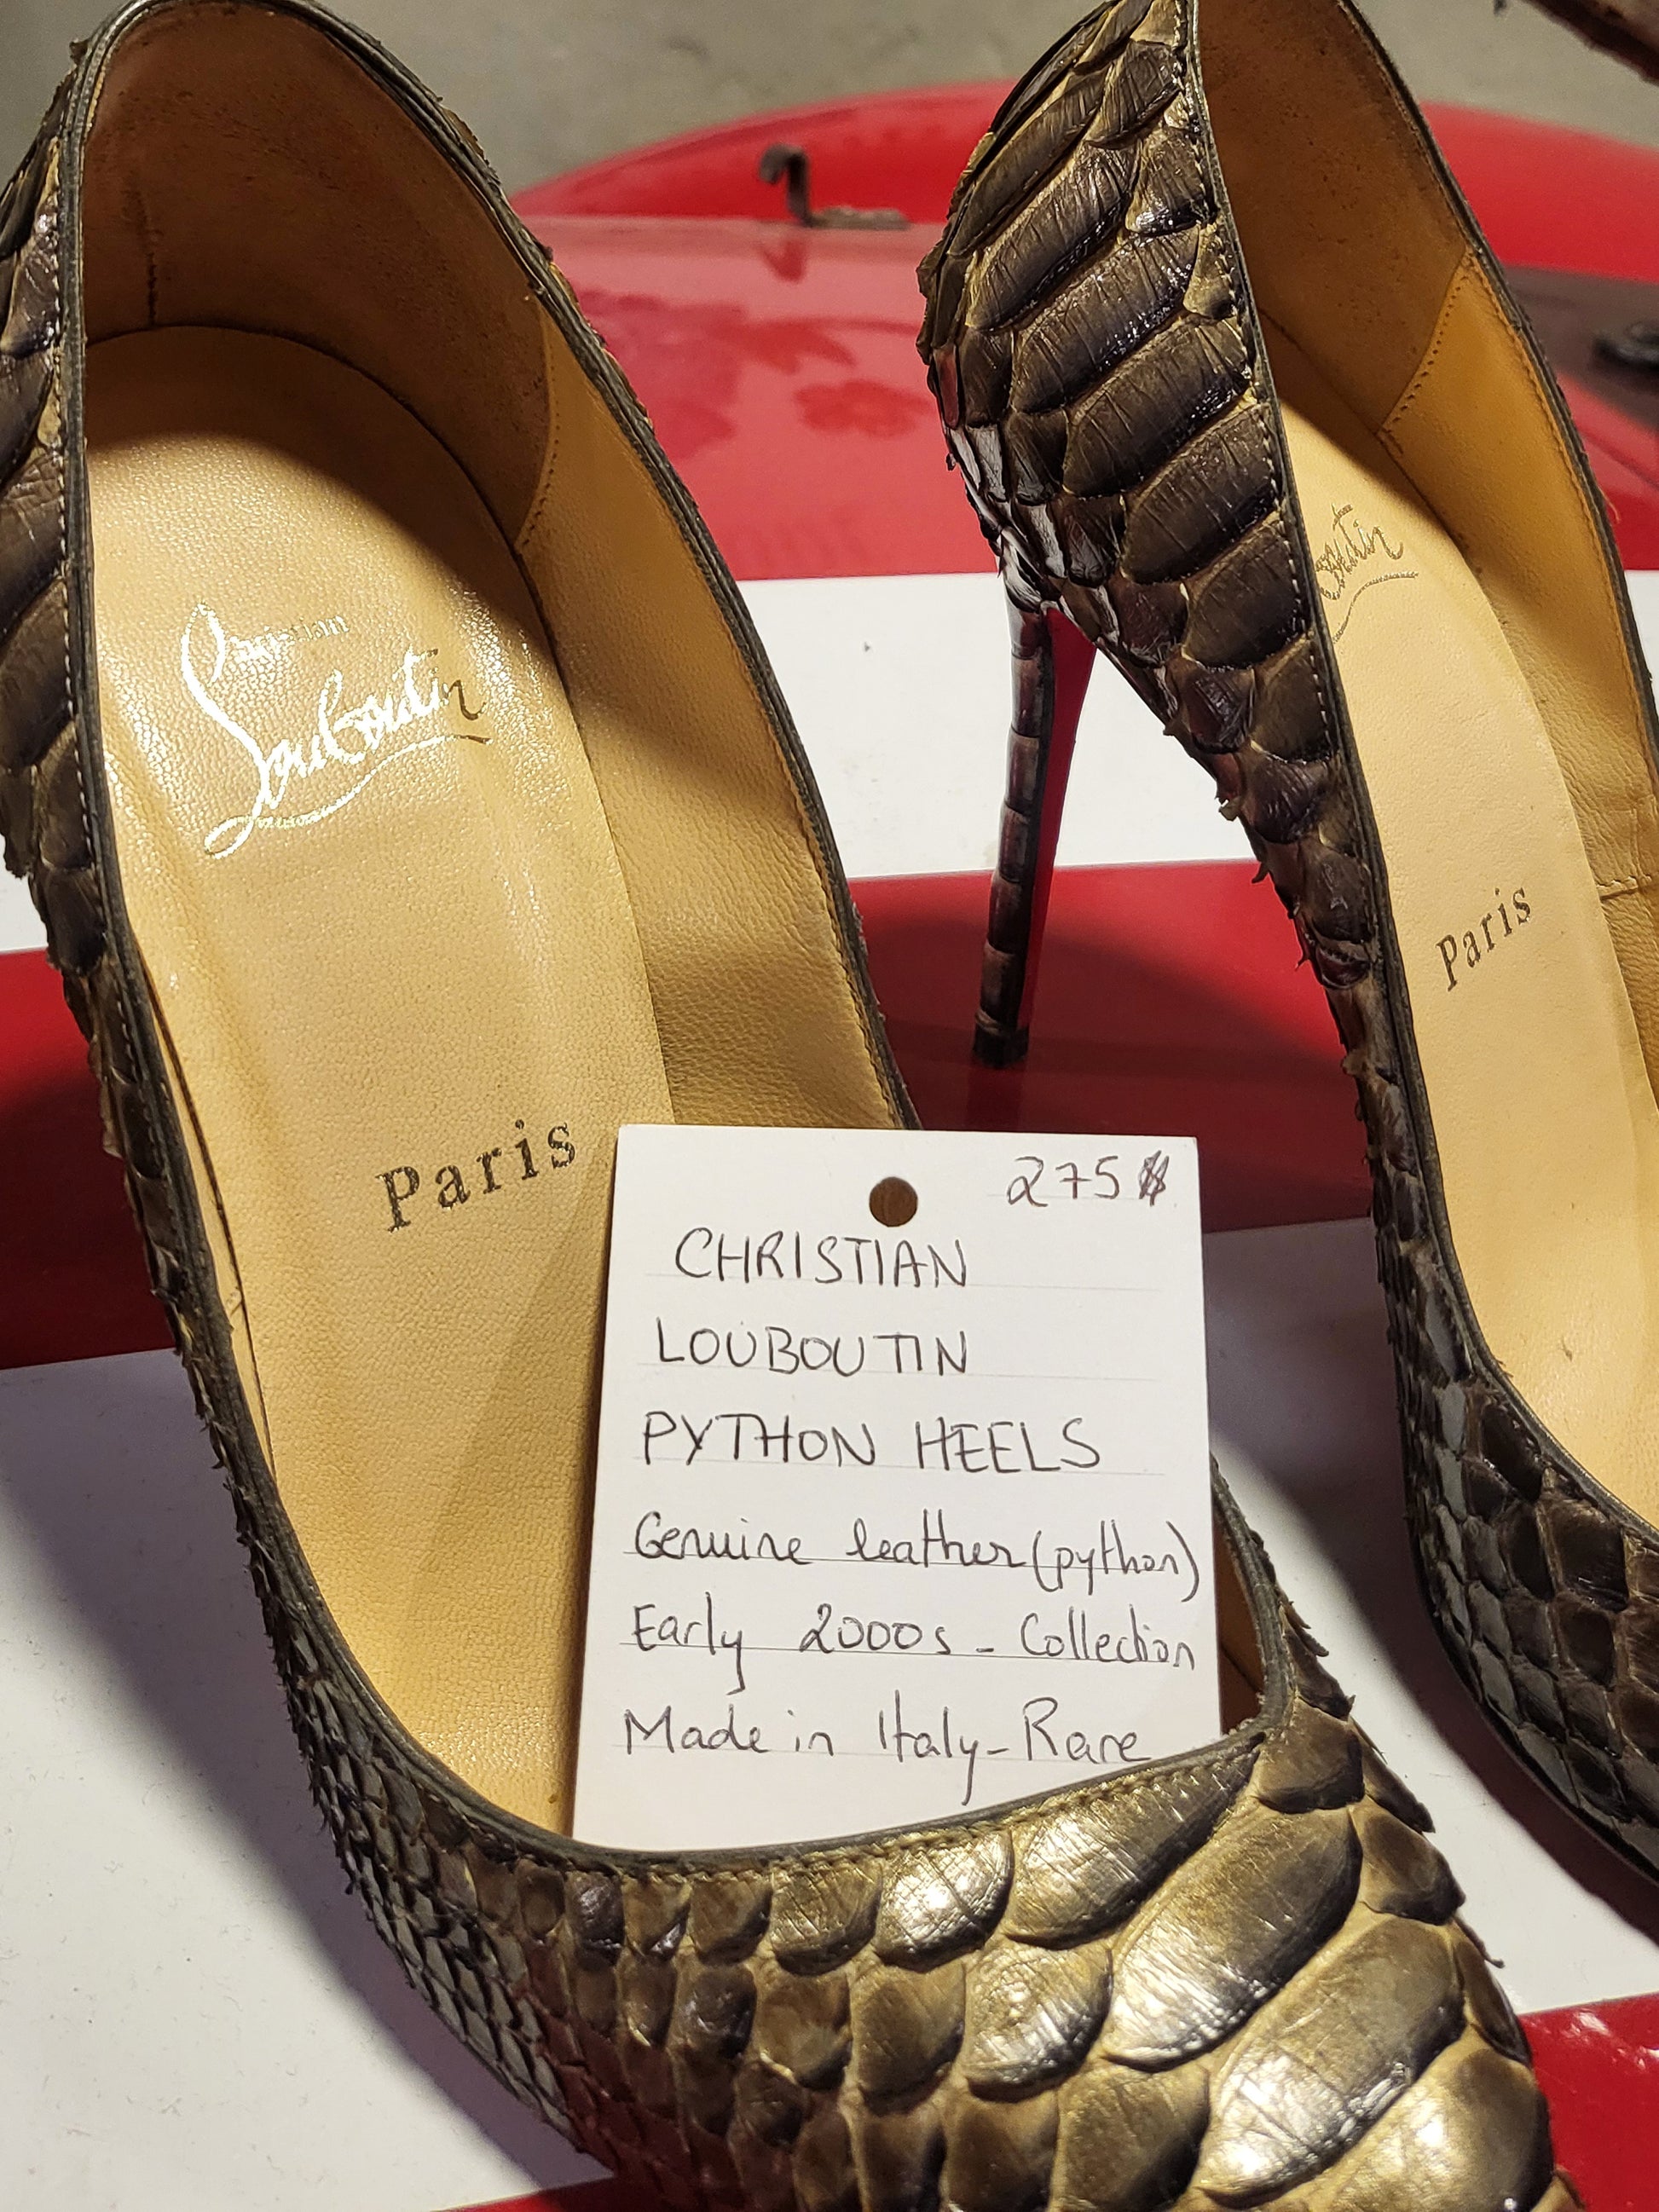 Christian
Louboutin
Paris
boutin
Paris
275$
CHRISTIAN
LOUBOUTIN
PYTHON HEELS
Genuine leather (python)
Early 2000s - Collection
Made in Italy - Rare